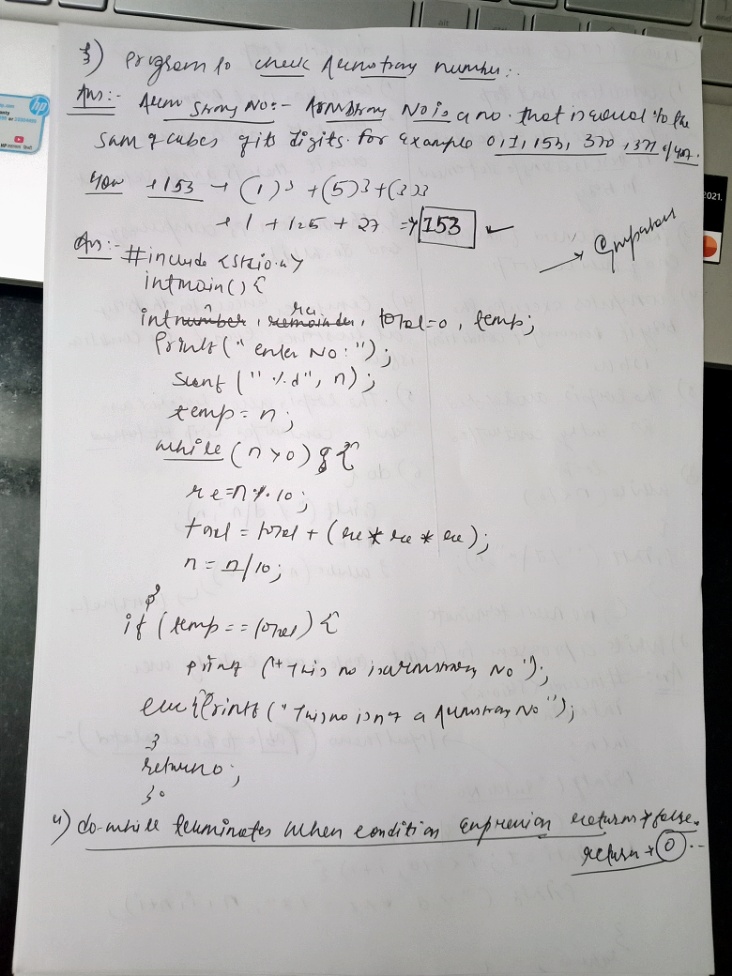 3) program to check Armstrong number:.
Ans:- Arm Strong No:- Armstrong No is a no. that is equal to the
sum of cubes of its digits. for example 0, 1, 153, 370, 371 & 407.
153 → (1)3 + (5)3 + (3)3
→ 1 + 125 + 27 => 153
→ Comparison
Ans:- #include <stdio.h>
int main() {
int number, remainder, total=0, temp;
re
n
Printf(" enter No:");
scanf ("%d", n);
temp = n;
while (n>0) {
re=n%10;
total = total + (re * re * re);
n = n/10;
}
if (temp == total) {
printf ("This no is armstrong No");
else {Printf ("This no isn't a Armstrong No");
}
return 0;
}
4) do-while terminates when condition expression returns → false.
return → 0
hp
2021.